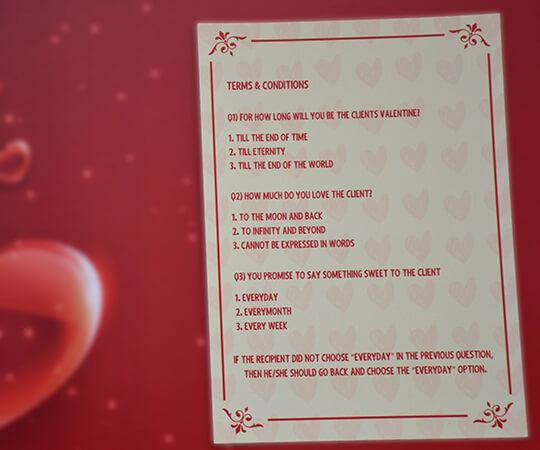 TERMS & CONDITIONS
Q1) FOR HOW LONG WILL YOU BE THE CLIENTS VALENTINE?
1. TILL THE END OF TIME
2. TILL ETERNITY
3. TILL THE END OF THE WORLD
Q2) HOW MUCH DO YOU LOVE THE CLIENT?
1. TO THE MOON AND BACK
2. TO INFINITY AND BEYOND
3. CANNOT BE EXPRESSED IN WORDS
Q3) YOU PROMISE TO SAY SOMETHING SWEET TO THE CLIENT
1. EVERYDAY
2. EVERYMONTH
3. EVERY WEEK
IF THE RECIPIENT DID NOT CHOOSE "EVERYDAY" IN THE PREVIOUS QUESTION,
THEN HE/SHE SHOULD GO BACK AND CHOOSE THE "EVERYDAY" OPTION.